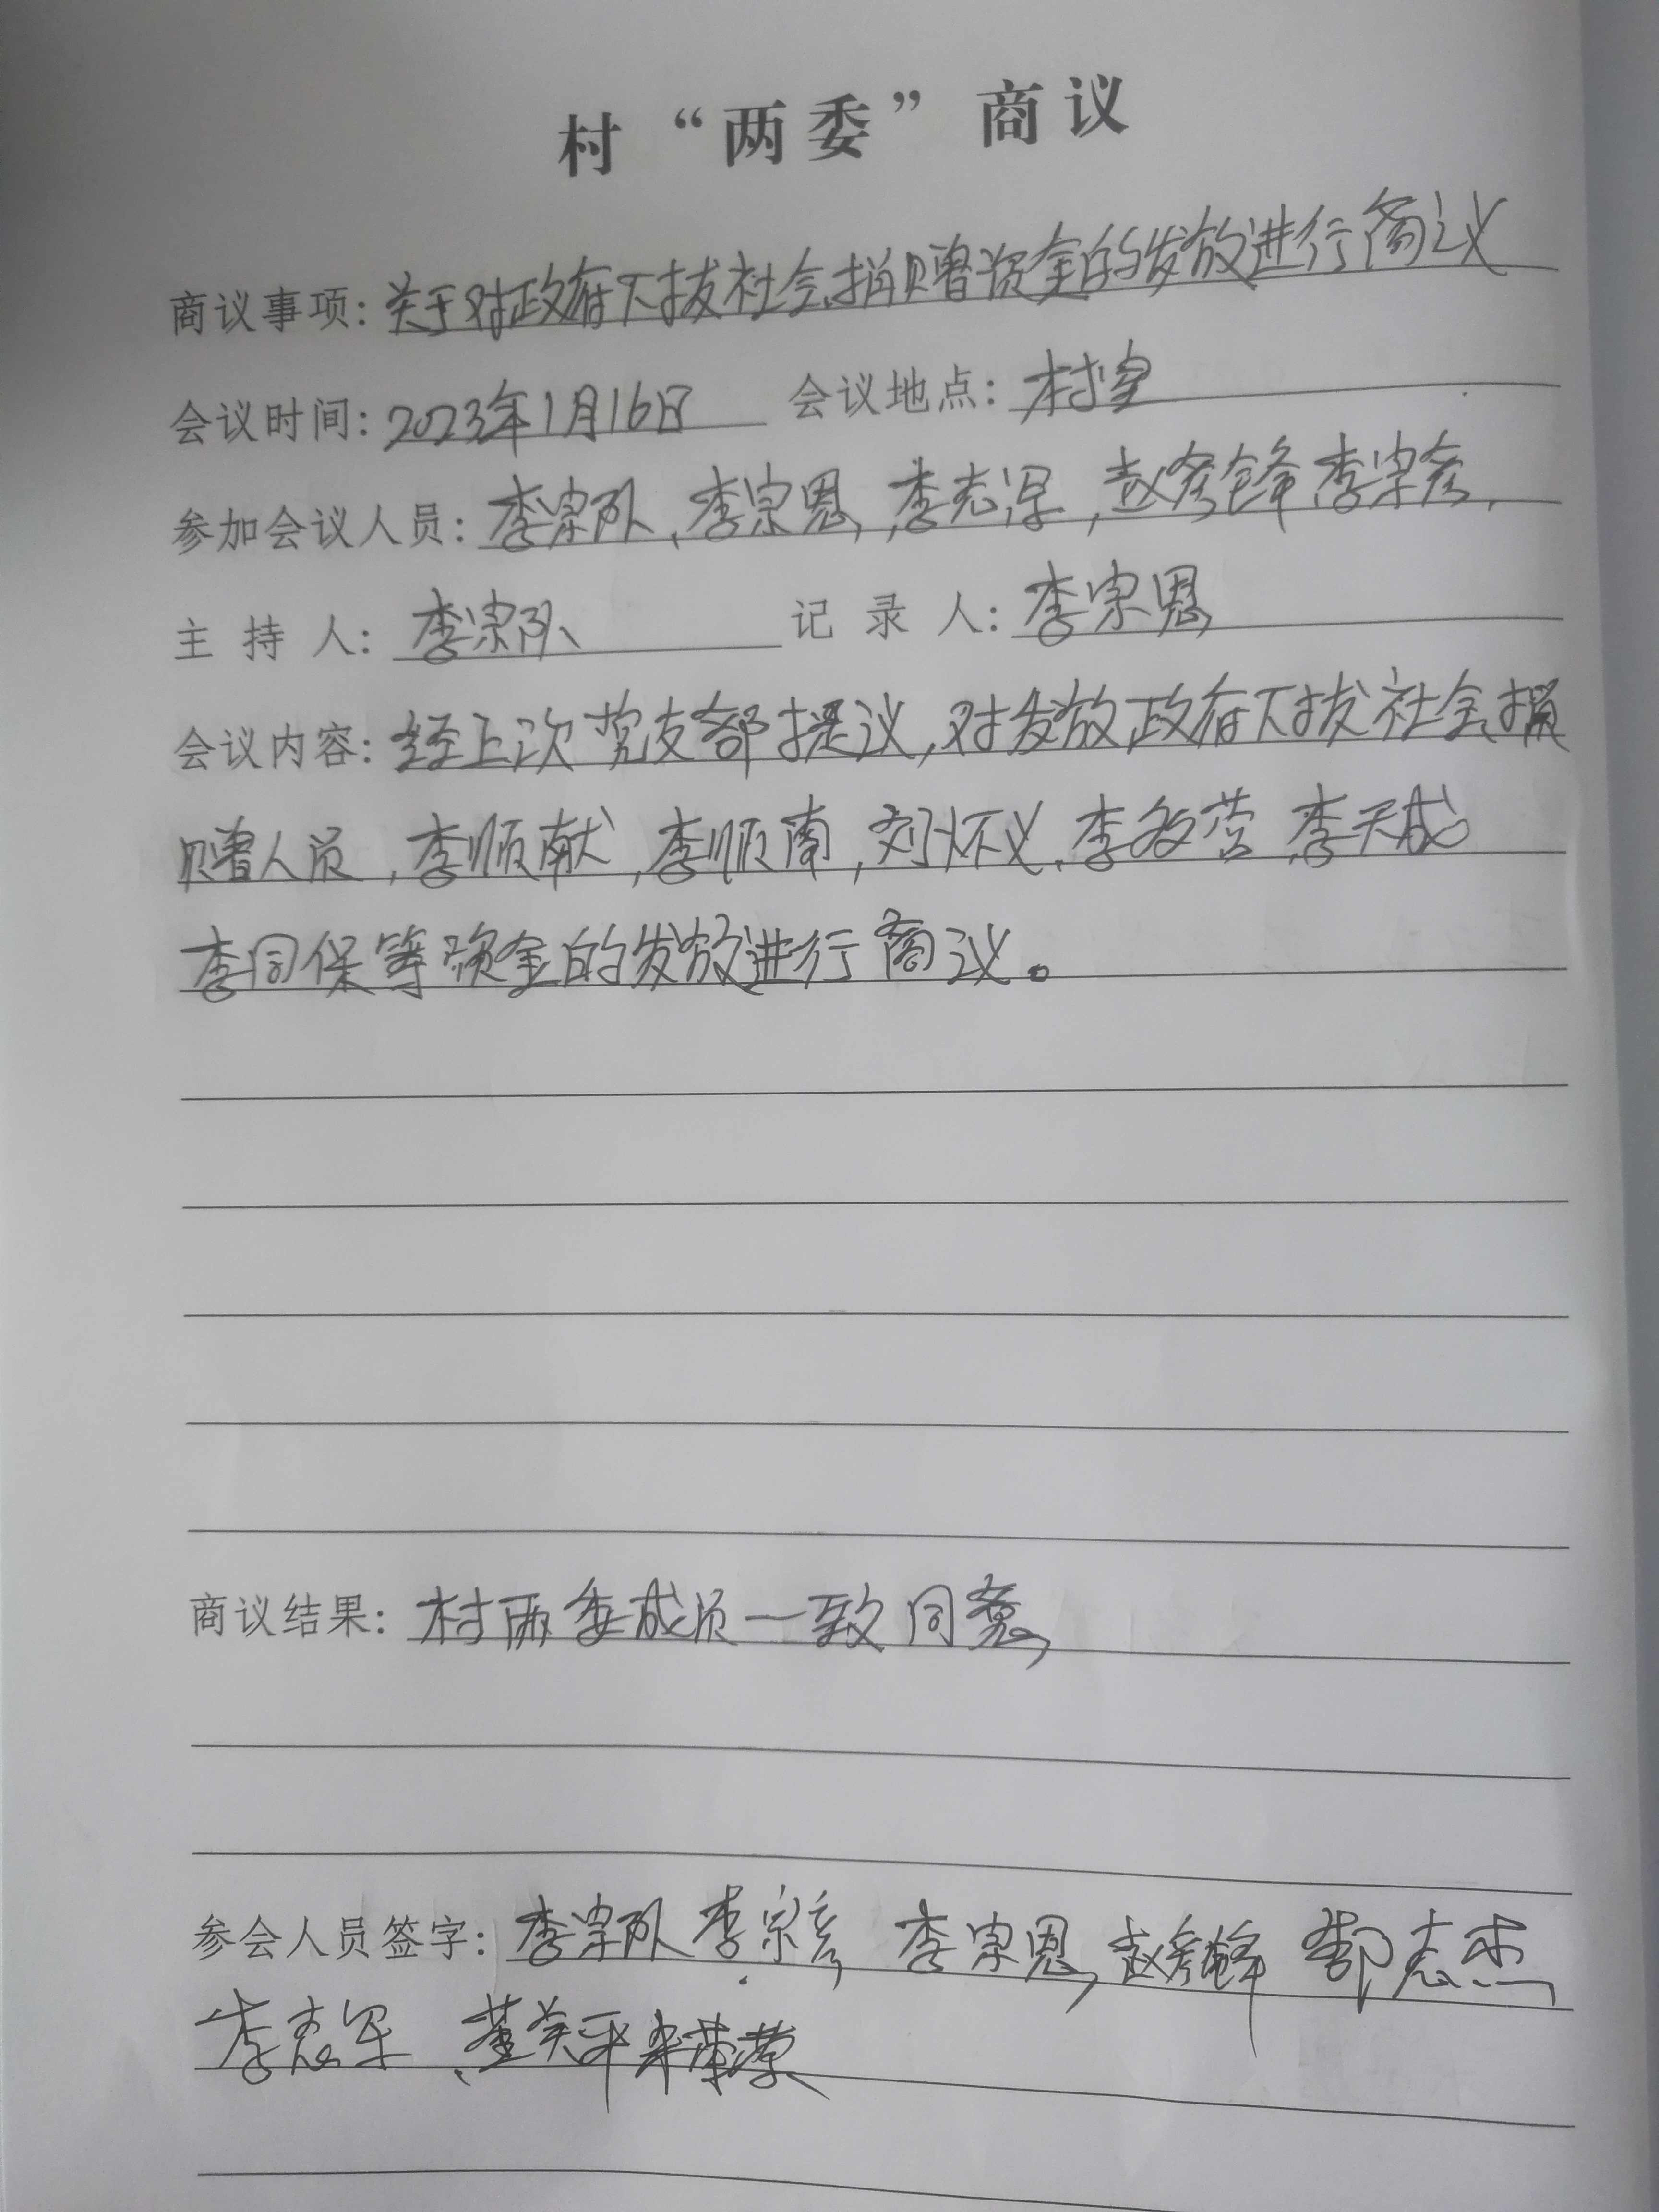 村“两委”商议
商议事项：关于对政府下拔社会捐赠资金的发放进行商议
会议时间：2023年1月16日 会议地点：村室
参加会议人员：李宗队、李宗恩，李志军，赵彦锋 李宗彦，
主持人：李宗队 记录人：李宗恩
会议内容：经上次党支部提议，对发放政府下拔社会捐
赠人员，李顺献，李顺南，刘怀义、李敬营 李天成
李同保等资金的发放进行商议。
商议结果：村两委成员一致同意
参会人员签字：李宗队 李宗彦 李宗恩 赵彦锋 郝志杰
李志军、董关平